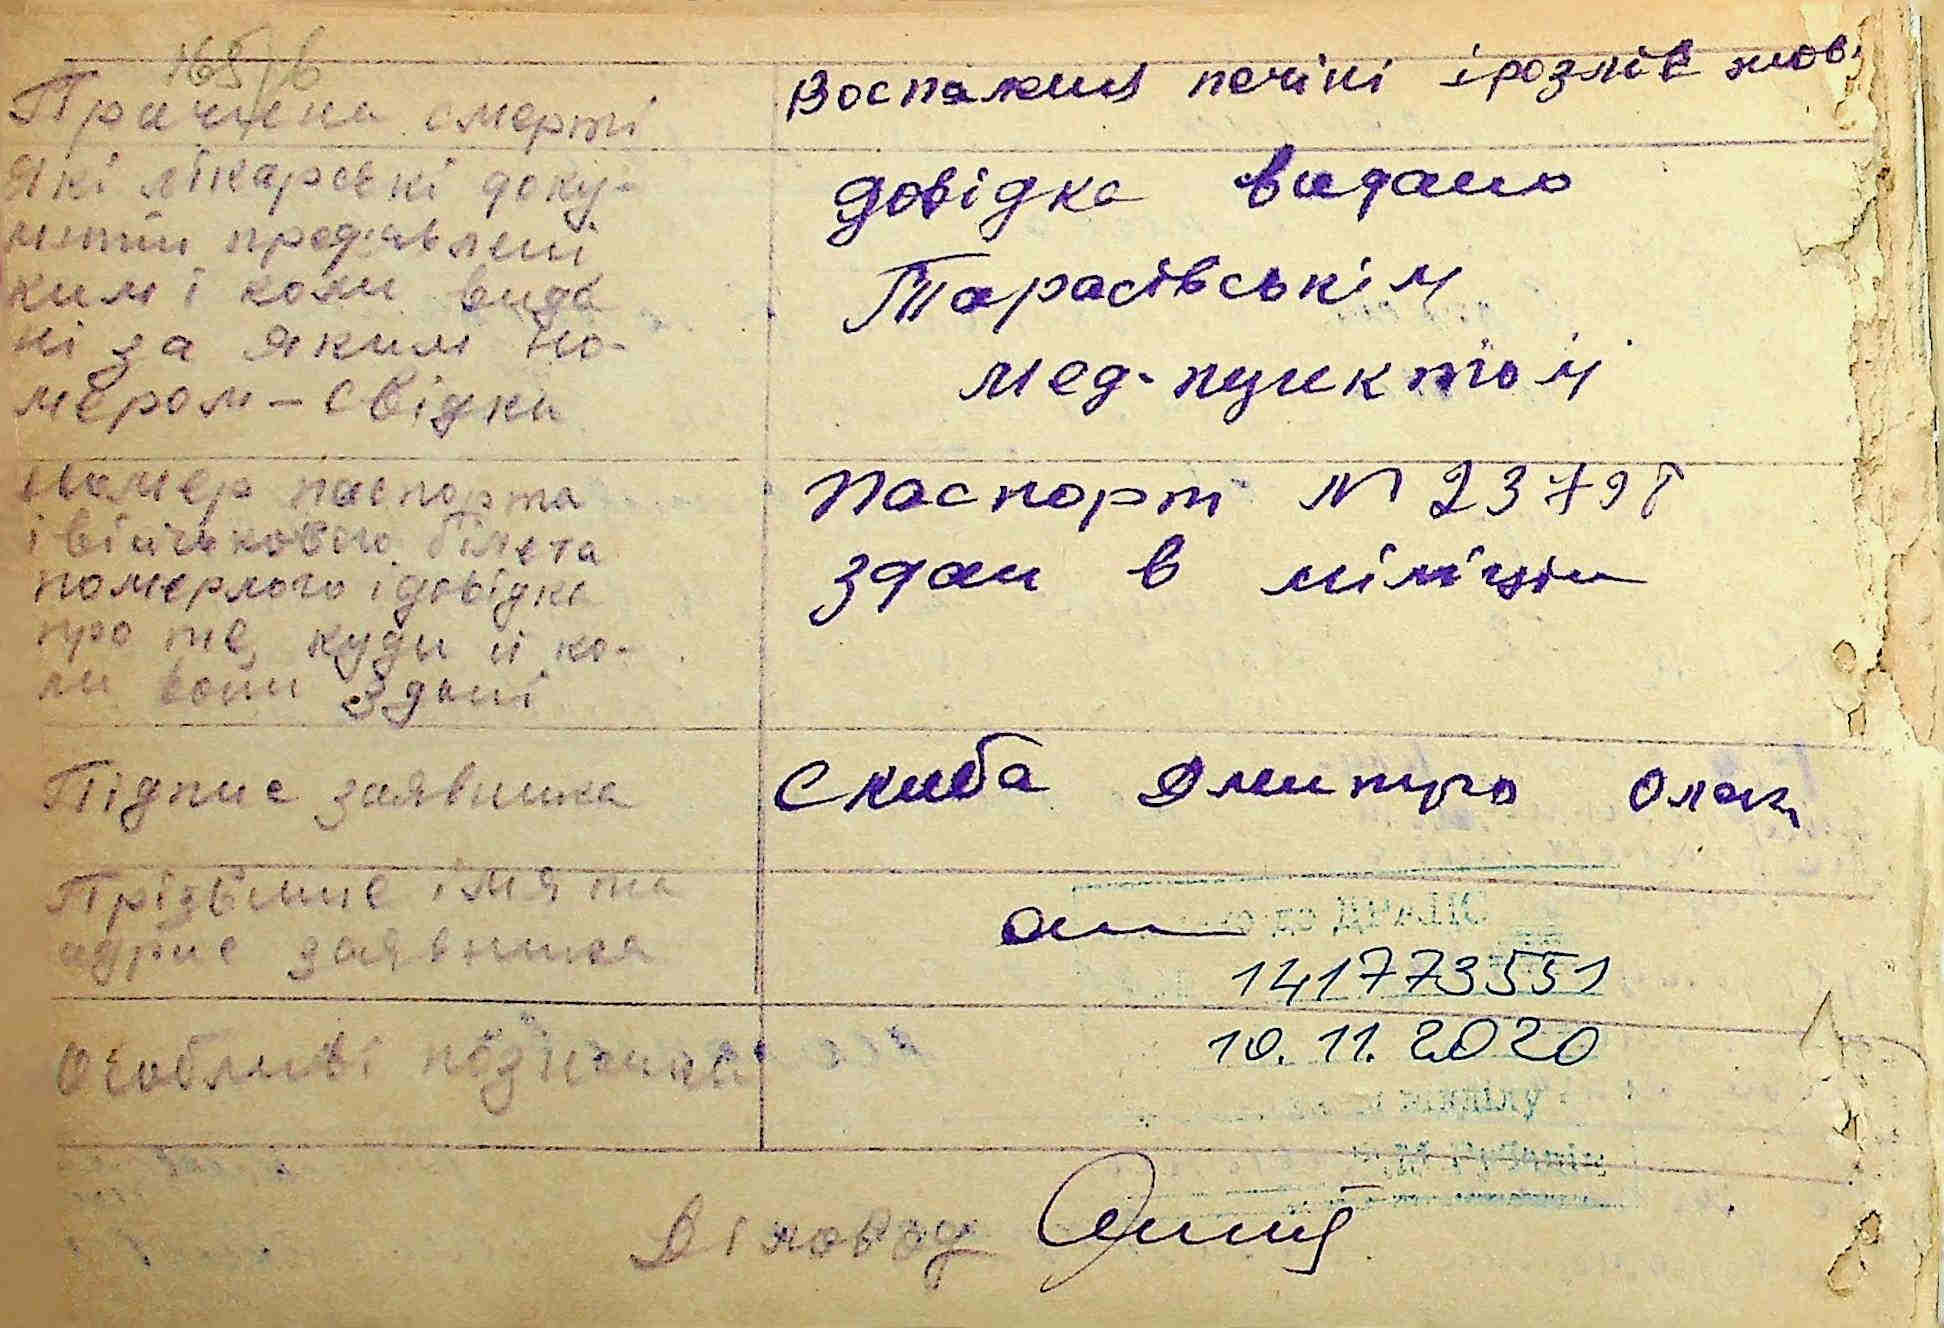 Причина смерті
Воспаления печіні і розлів жов
Які лікарські доку-
менти предявлені
ким і коли вида
ні за яким но-
мером - свідки
довідка видано
Тарасівськім
мед-пунктом
Номер паспорта
і військового білета
померлого і довідка
про те, куди й ко-
ли вони здані
Паспорт №
здан в міліцію
Підпис заявника
Скиба Дмитро
Прізвище імя та
адрис заявника
141773551
Особливі позначки
10.11.2020
Діловод